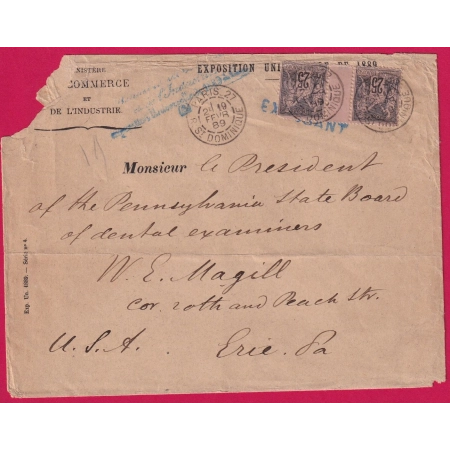 NISTÈRE
COMMERCE
ET
DE L'INDUSTRIE
EXPOSITION UNI DE 1889
PARIS. 27
2M 19
FEVR
89
ST DOMINIQUE
25
25
EX ANT
Monsieur le President
of the Pennsylvania State Board
of dental examiners
W. E. Magill
cor. 10th and Peach Str.
U.S.A. Erie. Pa
Exp. Un. 1889. — Série nº 4.